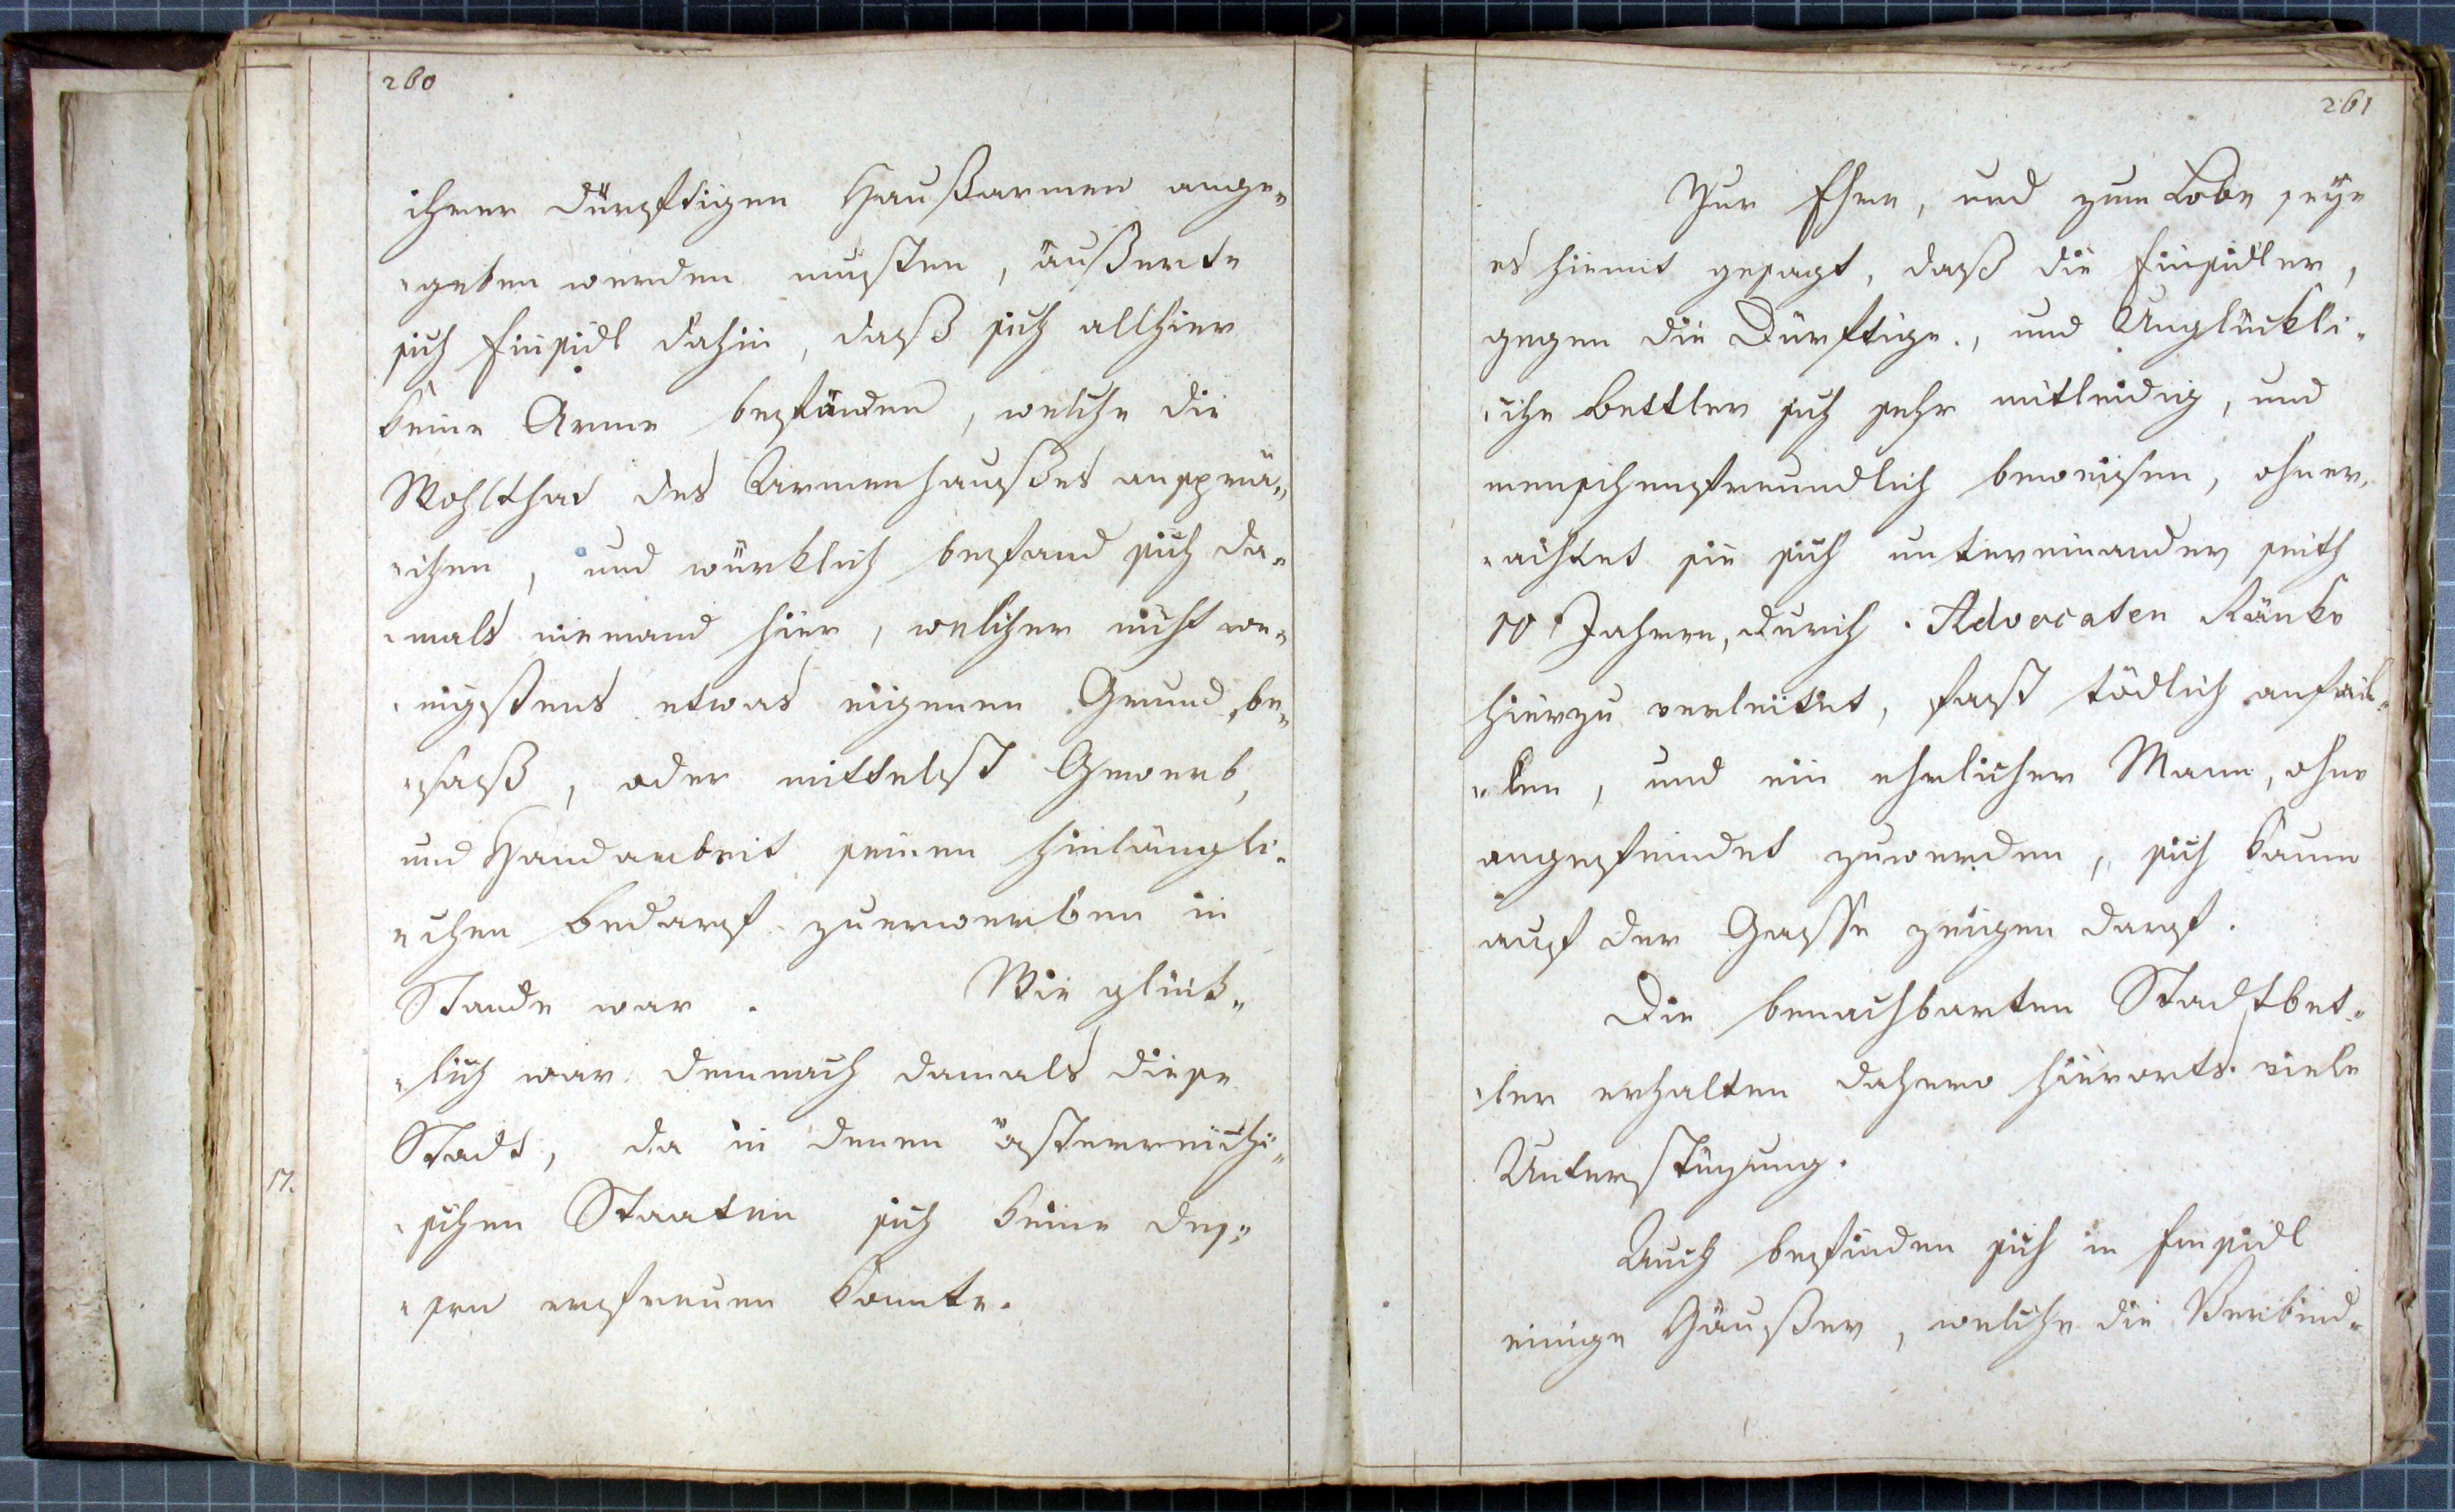 260
ihrer dürftigen Haußarmen ange„
„geben werden musten, äußerte
sich Einsidl dahin, daß sich allhier
keine Arme befänden, welche die
Wohlthat des Armenhaußes ansprä„
„chen, und würklich befand sich da„
„mals niemand hier, welcher nicht we„
„nigstens etwas eigenen Grund be„
„saß, oder mittelst Gewerb,
und Handarbeit seinen hinlängli„
„chen Bedarf zuerwerben in
Stande war. Wie glück„
„lich war demnach damals diese
Stadt, da in denen österreichi„
„schen Staaten sich keine des„
„sen erfreuen konnte.
261
Zur Ehre, und zum Lobe seye
es hiemit gesagt, daß die Einsidler,
gegen die Dürftige, und Unglückli„
„che Bettler sich sehr mitleidig, und
menschenfreundlich beweisen, ohner„
„achtet sie sich untereinander seith
10 Jahren, durch Advocaten Ränke
hierzu verleitet, fast tödlich anfäil„
„len, und ein ehrlicher Mann, ohne
angefeindet zuwerden, sich kaum
auf der Gasse zeigen darf.
Die benachbarten Stadtbet„
„ler erhalten dahero hierorts viele
Unterstüzung.
Auch befinden sich in Einsidl
einige Häußer, welche die Verbind„